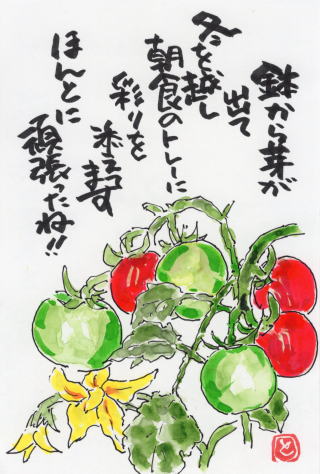 鉢から芽が
出て
冬を越し
朝食のトレーに
彩りを
添えます
ほんとに
頑張ったね!!
と